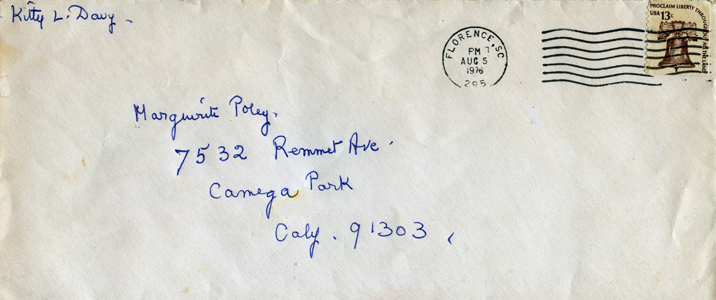 Kitty L. Davy -
FLORENCE, SC
PM
AUG 5
1976
295
PROCLAIM LIBERTY THROUGHOUT ALL THE LAND
USA 13c
Marguerite Poley.
7532 Remmet Ave.
Camega Park
Caly. 91303